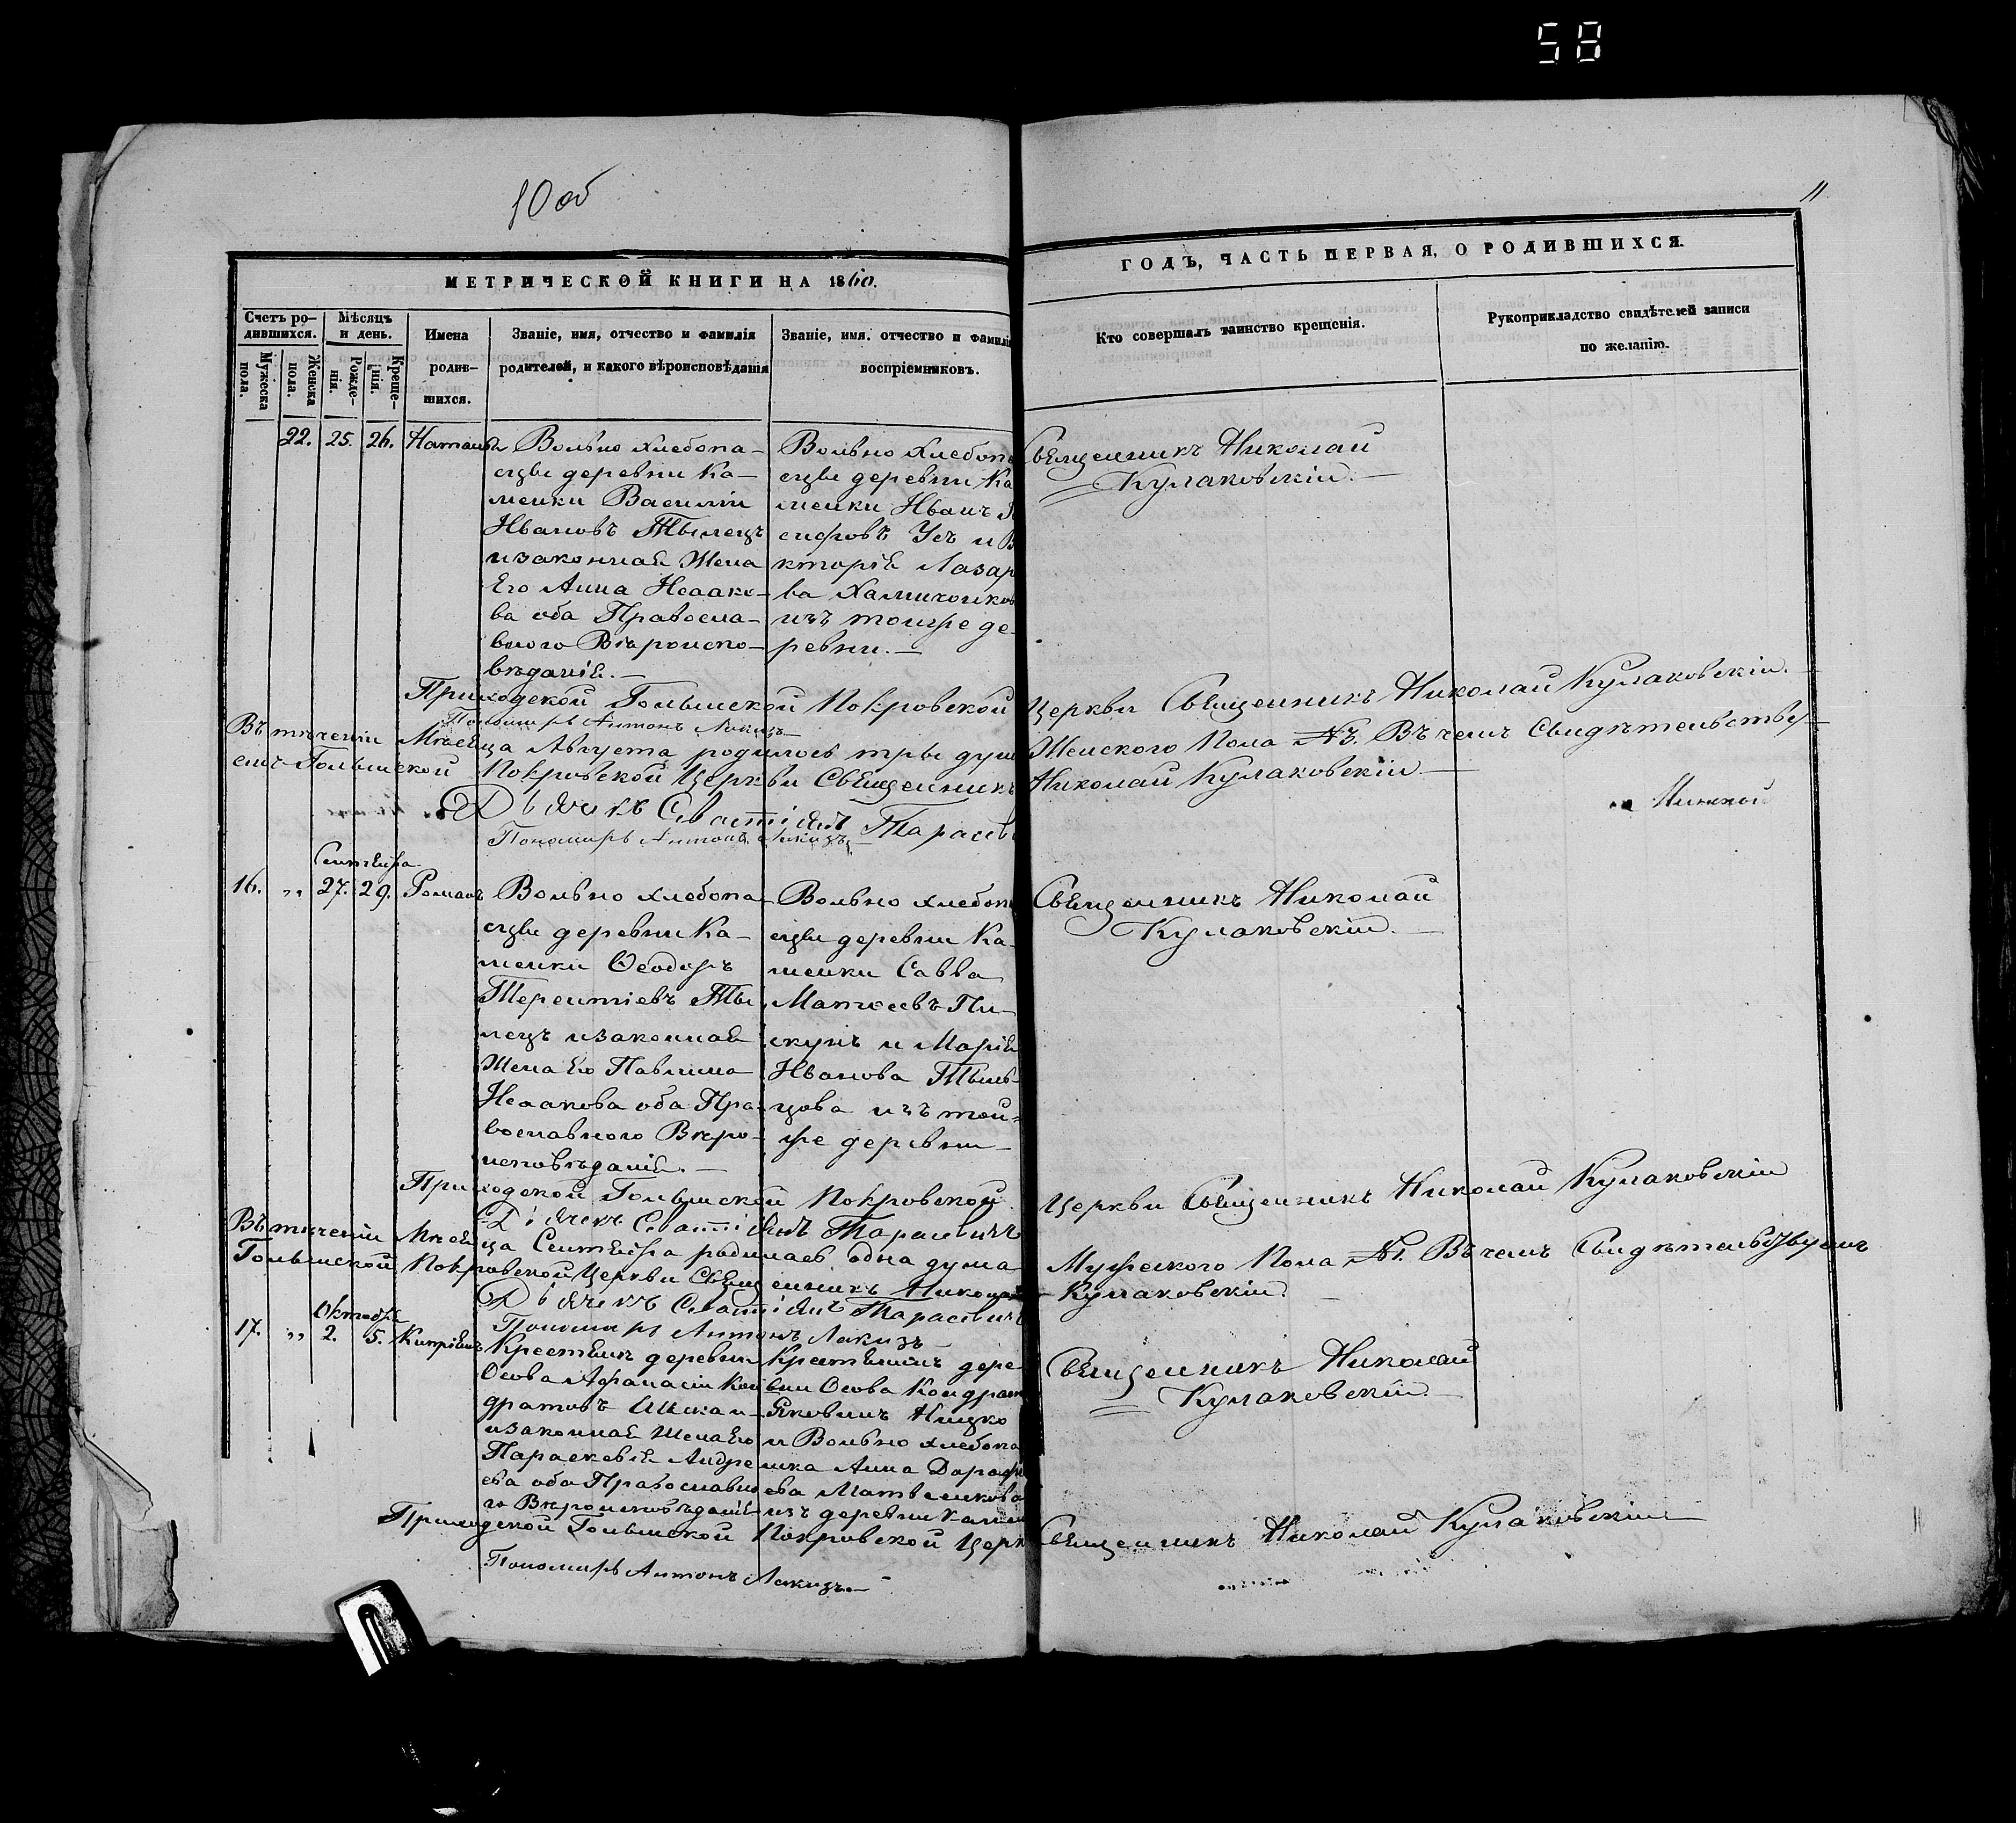 58
10 об
11
МЕТРИЧЕСКОЙ КНИГИ НА 1860.
ГОДЪ, ЧАСТЬ ПЕРВАЯ, О РОДИВШИХСЯ.
Счетъ ро-
дившихся.
Мѣсяцъ
и день.
Мужеска
пола.
Женска
пола.
Рожде-
нія.
Креще-
нія.
Имена
родив-
шихся.
Званіе, имя, отчество и фамилія
родителей, и какого вѣроисповѣданія
Званіе, имя, отчество и фамилі
воспріемниковъ.
Кто совершалъ таинство крещенія.
Рукоприкладство свидѣтелей записи
по желанію.
22. 25. 26. Наталія
Вольно хлебопа-
сцы деревни Ка-
менки Василій
Ивановъ Тылецъ
и законная Жена
Его Анна Исаако-
ва оба Правосла-
вного Вѣроиспо-
вѣданія.
Вольно Хлебопа
сцы деревни Ка
менки Иванъ
сифовъ Усъ и В
кторія Лазар
ва
изъ тойже де-
ревни.
Священникъ Николай
Кулаковскій.
Приходской Голынской Покровской Церкви Священникъ Николай Кулаковскій.
Пономарь Антонъ
Въ теченіи Мѣсяца Августа родилось три душ Женского Пола №3. Въ чемъ Свидѣтельству-
емъ Голынской Покровской Церкви Священникъ Николай Кулаковскій
Дьячекъ Севастіянъ Тарасев
Пономарь Антонъ
Сентября
16. „ 27. 29. Романъ
Вольно хлебопа-
сцы деревни Ка-
менки Ѳеодоръ
Терентіевъ Ты
лецъ и законная
Жена Его Павлина
Исаакова оба Пра-
вославного Вѣро-
исповѣданія.
Вольно хлебопа
сцы деревни Ка-
менки Савва
Матѳеевъ Пи-
скунъ и Марія
Иванова Тыль-
цова изъ той-
же деревни
Священникъ Николай
Кулаковскій.
Приходской Голынской Покровской Церкви Священникъ Николай Кулаковскій
Дьячекъ Севастіянъ Тарасевичъ
Въ теченіи Мѣсяца Сентября родилась одна душа Мужеского Пола №1. Въ чемъ Свидѣтельствуемъ
Голынской Покровской Церкви Священникъ Никола Кулаковскій
Дьячекъ Севастіянъ Тарасевичъ
Пономарь Антонъ
Октября
17. „ 2. 5. Кипріянъ
Крестьянъ деревни
Осова Афанасій Кон
дратовъ
и законная Жена Его
Параскевія Андре
ева оба Православно
го Вѣроисповѣданія
Крестьянинъ дере-
вни Осова Кондрат
Яковинъ
и Вольно хлебопа
шка Анна Дороф
ева
изъ деревни Камен
Священникъ Николай
Кулаковскій
Приходской Голынской Покровской Церк Священникъ Николай Кулаковскій
Пономарь Антонъ